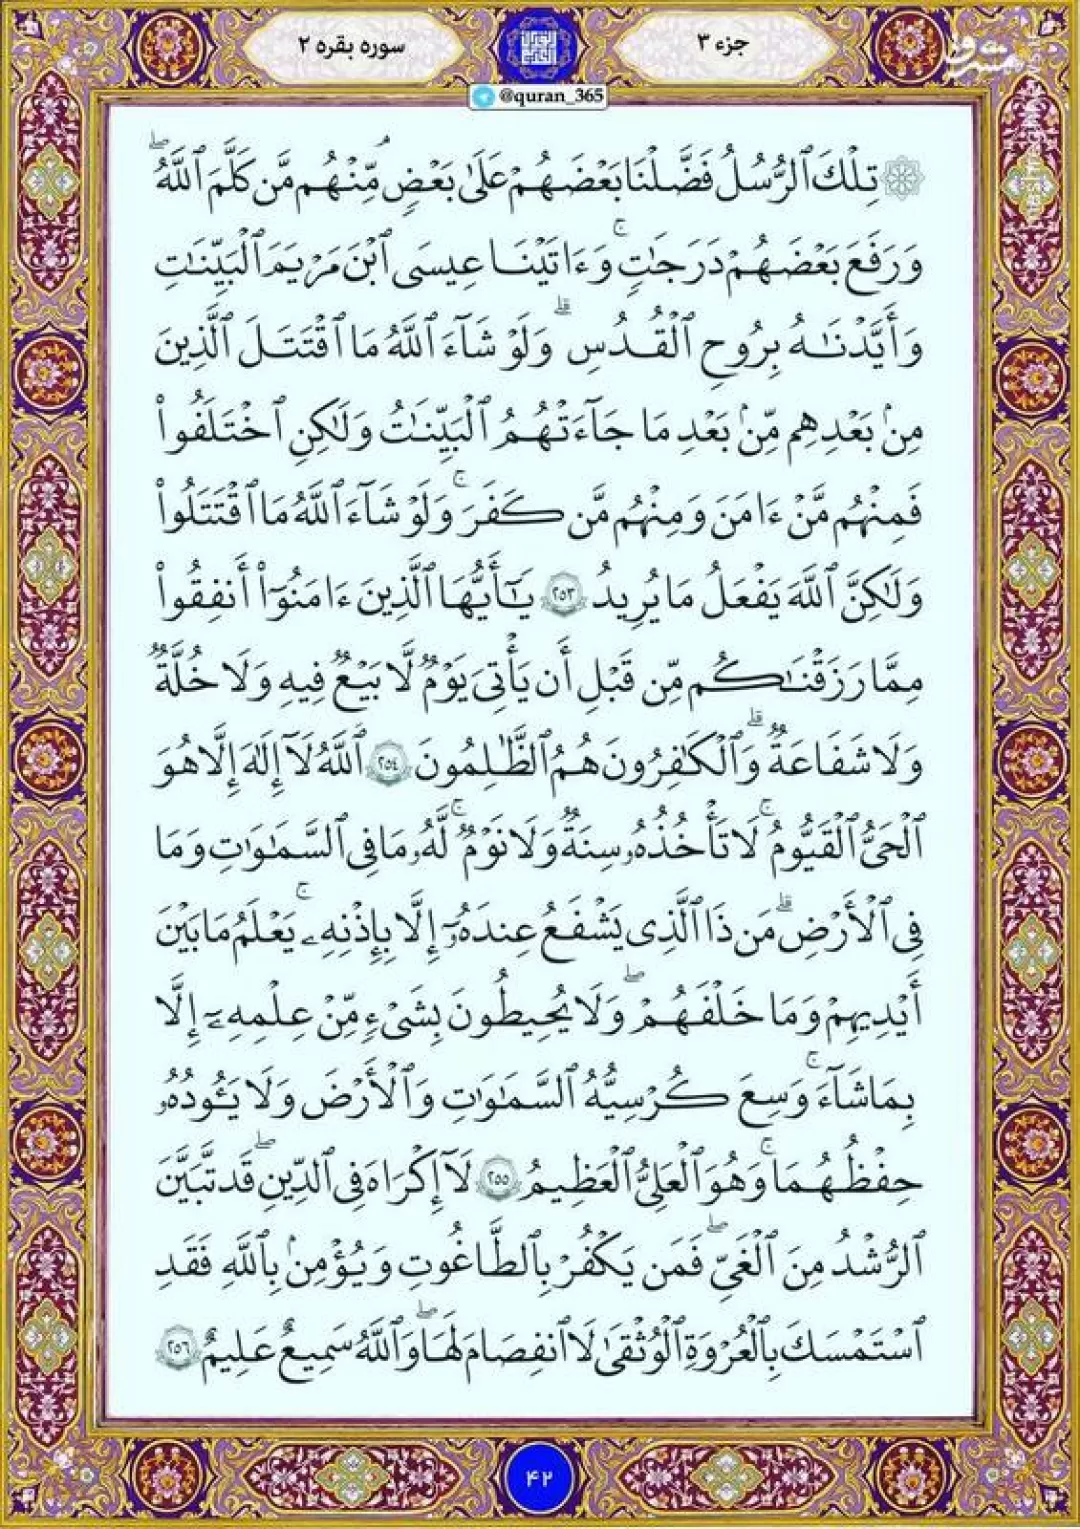 جزء ۳
سوره بقره ۲
@quran_365
۞ تِلْكَ ٱلرُّسُلُ فَضَّلْنَا بَعْضَهُمْ عَلَىٰ بَعْضٍۘ مِّنْهُم مَّن كَلَّمَ ٱللَّهُۖ
وَرَفَعَ بَعْضَهُمْ دَرَجَٰتٍۚ وَءَاتَيْنَا عِيسَى ٱبْنَ مَرْيَمَ ٱلْبَيِّنَٰتِ
وَأَيَّدْنَٰهُ بِرُوحِ ٱلْقُدُسِۗ وَلَوْ شَآءَ ٱللَّهُ مَا ٱقْتَتَلَ ٱلَّذِينَ
مِنۢ بَعْدِهِم مِّنۢ بَعْدِ مَا جَآءَتْهُمُ ٱلْبَيِّنَٰتُ وَلَٰكِنِ ٱخْتَلَفُوا۟
فَمِنْهُم مَّنْ ءَامَنَ وَمِنْهُم مَّن كَفَرَۚ وَلَوْ شَآءَ ٱللَّهُ مَا ٱقْتَتَلُوا۟
وَلَٰكِنَّ ٱللَّهَ يَفْعَلُ مَا يُرِيدُ ٢٥٣ يَٰٓأَيُّهَا ٱلَّذِينَ ءَامَنُوٓا۟ أَنفِقُوا۟
مِمَّا رَزَقْنَٰكُم مِّن قَبْلِ أَن يَأْتِىَ يَوْمٌ لَّا بَيْعٌ فِيهِ وَلَا خُلَّةٌ
وَلَا شَفَٰعَةٌۗ وَٱلْكَٰفِرُونَ هُمُ ٱلظَّٰلِمُونَ ٢٥٤ ٱللَّهُ لَآ إِلَٰهَ إِلَّا هُوَ
ٱلْحَىُّ ٱلْقَيُّومُۚ لَا تَأْخُذُهُۥ سِنَةٌ وَلَا نَوْمٌۚ لَّهُۥ مَا فِى ٱلسَّمَٰوَٰتِ وَمَا
فِى ٱلْأَرْضِۗ مَن ذَا ٱلَّذِى يَشْفَعُ عِندَهُۥٓ إِلَّا بِإِذْنِهِۦۚ يَعْلَمُ مَا بَيْنَ
أَيْدِيهِمْ وَمَا خَلْفَهُمْۖ وَلَا يُحِيطُونَ بِشَىْءٍ مِّنْ عِلْمِهِۦٓ إِلَّا
بِمَا شَآءَۚ وَسِعَ كُرْسِيُّهُ ٱلسَّمَٰوَٰتِ وَٱلْأَرْضَ وَلَا يَـُٔودُهُۥ
حِفْظُهُمَاۚ وَهُوَ ٱلْعَلِىُّ ٱلْعَظِيمُ ٢٥٥ لَآ إِكْرَاهَ فِى ٱلدِّينِۖ قَد تَّبَيَّنَ
ٱلرُّشْدُ مِنَ ٱلْغَىِّۚ فَمَن يَكْفُرْ بِٱلطَّٰغُوتِ وَيُؤْمِنۢ بِٱللَّهِ فَقَدِ
ٱسْتَمْسَكَ بِٱلْعُرْوَةِ ٱلْوُثْقَىٰ لَا ٱنفِصَامَ لَهَاۗ وَٱللَّهُ سَمِيعٌ عَلِيمٌ ٢٥٦
۴۲